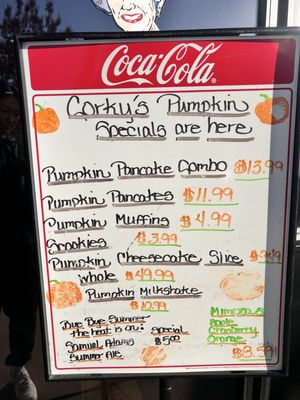 Coca-Cola
Corky's Pumpkin
Specials are here
Pumpkin Pancake Combo $13.99
Pumpkin Pancakes $11.99
Pumpkin Muffins $4.99
Crookies $3.99
Pumpkin Cheesecake Slice
whole $49.99
Pumpkin Milkshake
$10.99
Bye Bye Summer
the heat is on! Special
Samuel Adams $5.00
Summer Ale
Mimosa's
Apple
Cranberry
Orange
$8.59